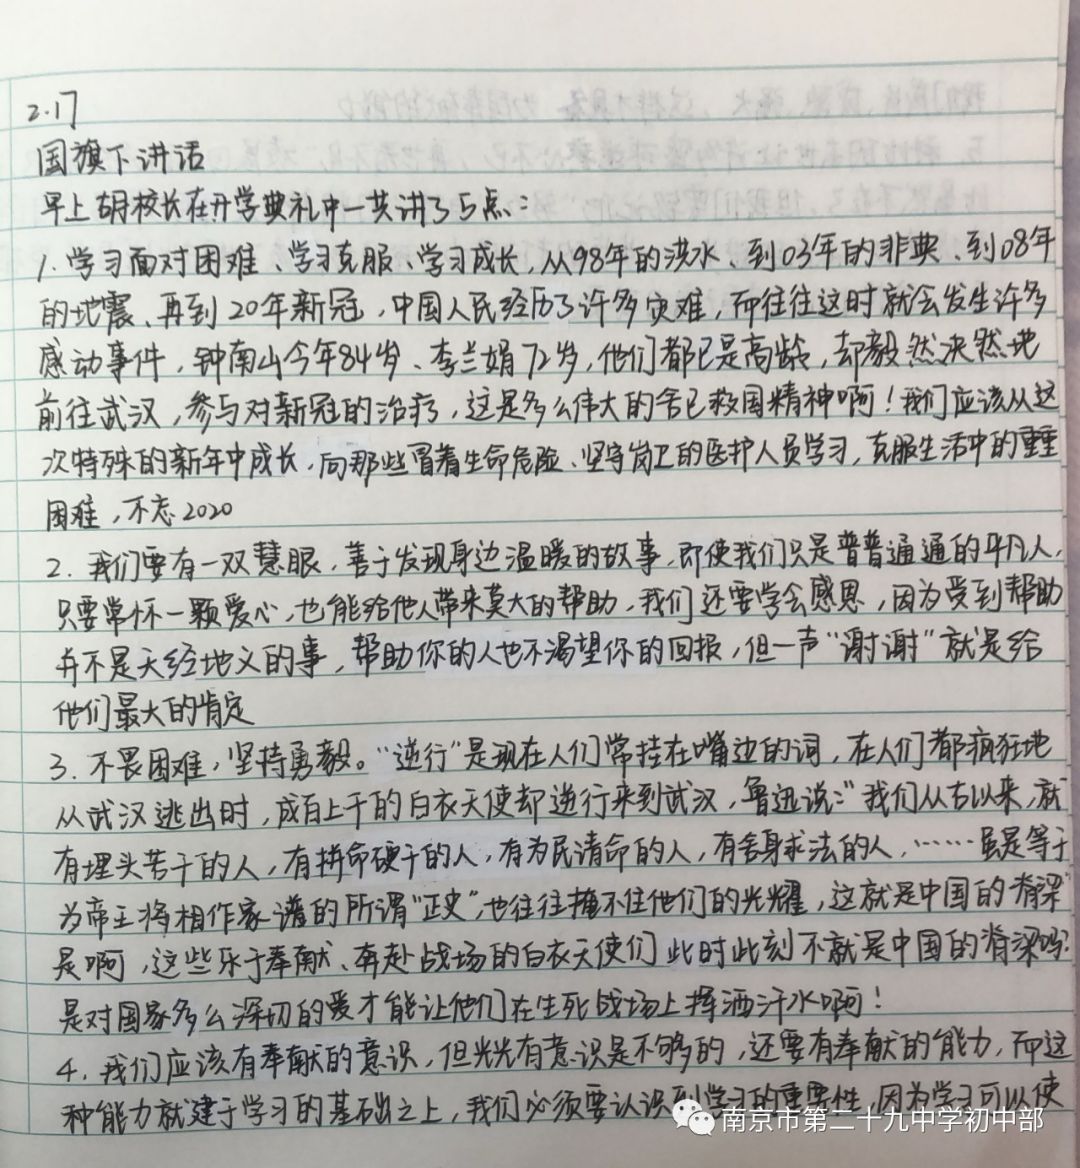 2.17
国旗下讲话
早上胡校长在开学典礼中一共讲了5点：
1.学习面对困难、学习克服、学习成长，从98年的洪水、到03年的非典、到08年
的地震、再到20年新冠，中国人民经历了许多灾难，而往往这时就会发生许多
感动事件，钟南山今年84岁、李兰娟72岁，他们都已是高龄，却毅然决然地
前往武汉，参与对新冠的治疗，这是多么伟大的舍己救国精神啊！我们应该从这
次特殊的新年中成长，向那些冒着生命危险、坚守岗卫的医护人员学习，克服生活中的重重
困难，不忘2020
2.我们要有一双慧眼，善于发现身边温暖的故事，即使我们只是普普通通的平凡人，
只要常怀一颗爱心，也能给他人带来莫大的帮助，我们还要学会感恩，因为受到帮助
并不是天经地义的事，帮助你的人也不渴望你的回报，但一声“谢谢”就是给
他们最大的肯定
3.不畏困难，坚持勇毅。“逆行”是现在人们常挂在嘴边的词，在人们都疯狂地
从武汉逃出时，成百上千的白衣天使却逆行来到武汉，鲁迅说：“我们从古以来，就
有埋头苦干的人，有拼命硬干的人，有为民请命的人，有舍身求法的人，……虽是等于
为帝王将相作家谱的所谓“正史”，也往往掩不住他们的光耀，这就是中国的脊梁”
是啊，这些乐于奉献、奔赴战场的白衣天使们此时此刻不就是中国的脊梁吗？
是对国家多么深切的爱才能让他们在生死战场上挥洒汗水啊！
4.我们应该有奉献的意识，但光光有意识是不够的，还要有奉献的能力，而这
种能力就建于学习的基础之上，我们必须要认识到学习的重要性，因为学习可以使
南京市第二十九中学初中部